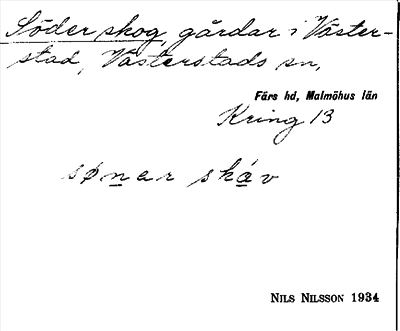 Söderskog, gårdar i Väster-
stad, Västerstads sn,
Färs hd, Malmöhus län
Kring 13
sønar skáv
NILS NILSSON 1934